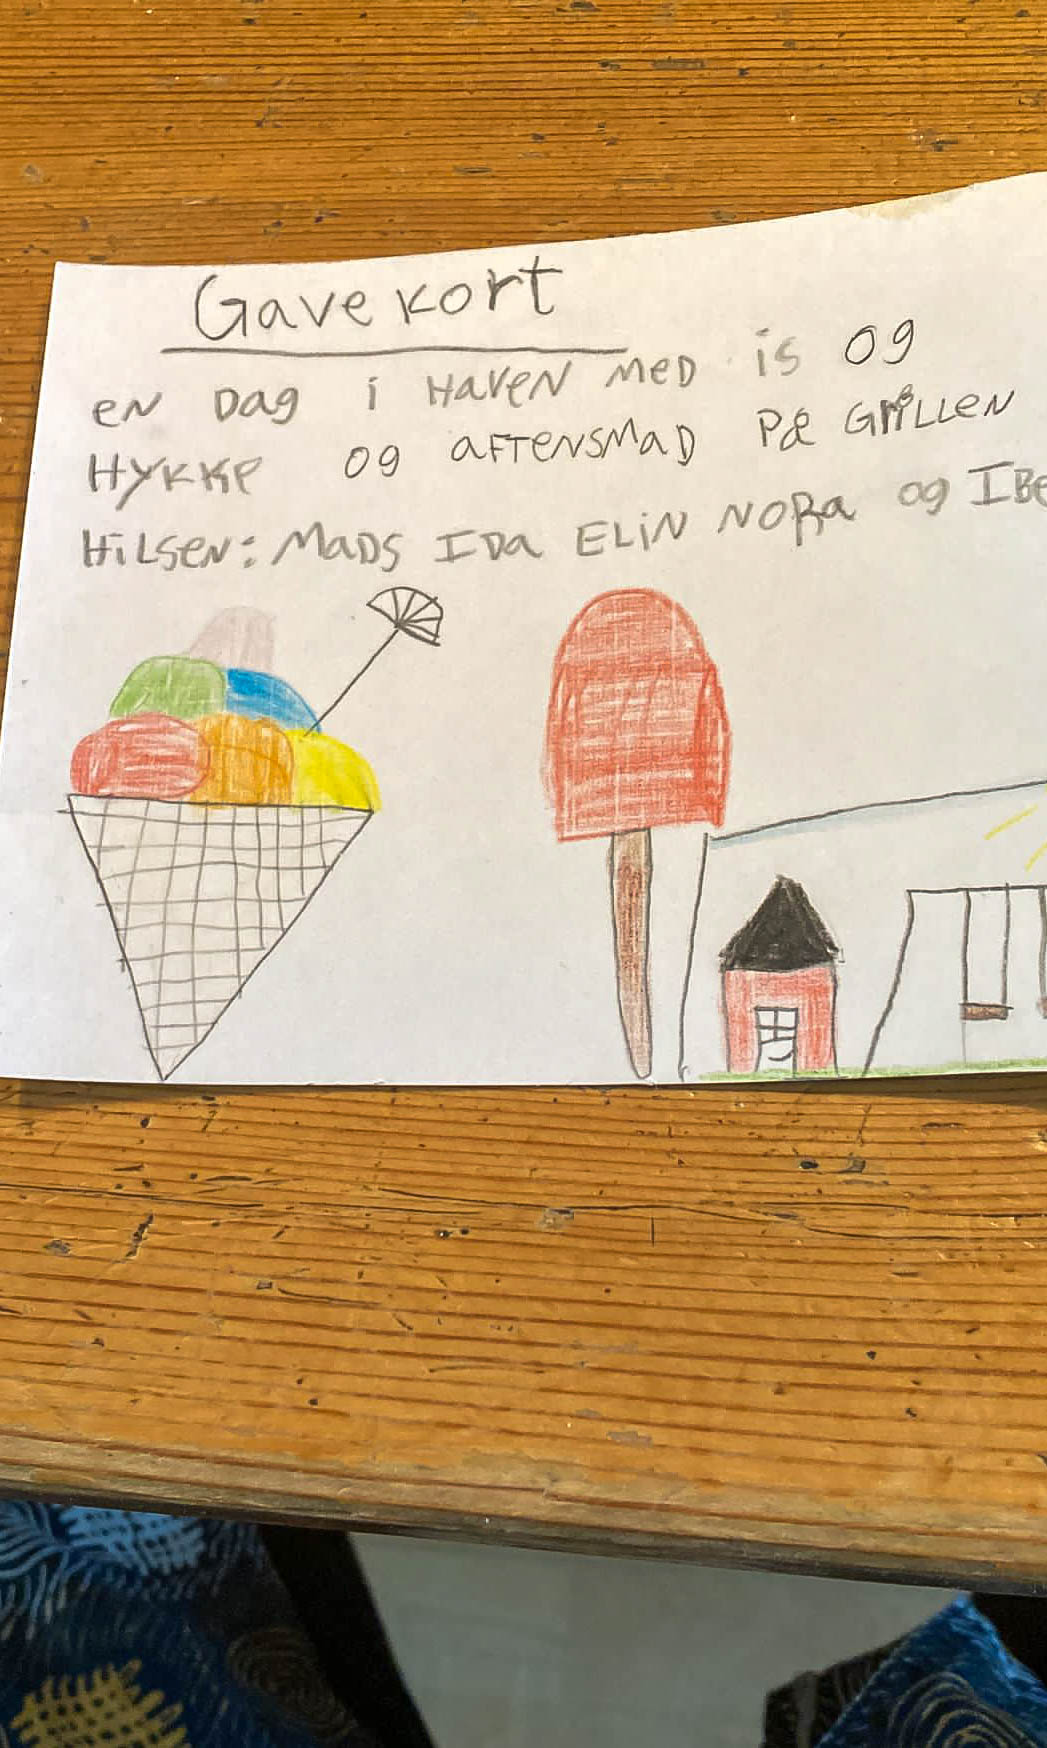 Gavekort
en Dag i Haven med is og
HYKKE og aFTensmaD På GRILLEN
HiLsen: MaDS IDa ELiN NORa og IBe